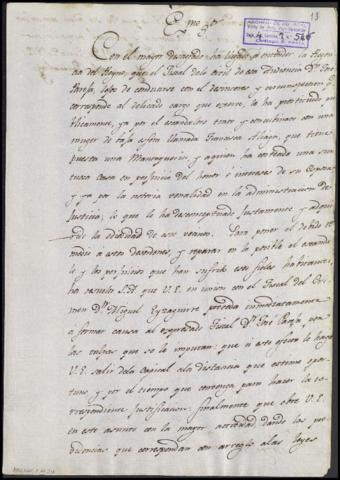 Exmo Sor
13
Con el mayor desagrado ha llegado a entender la Regen
cia del Reyno, que el Fiscal de lo civil de esa Audiencia Dn. José
Pareja, lejos de conducirse con el decoro y circunspeccion q
corresponde al delicado cargo que exerce, la ha prostituido pu
blicamente, ya por el escandaloso trato y amistad con una
muger de baja esfera llamada Francisca Aliaga, que tiene
puesta una y a quien ha costeado una sun
tuosa casa en perjuicio del honor e intereses de su Esposa;
y ya por la notoria venalidad en la administracion de
Justicia; lo que le ha desconceptuado justamente y adqui
rido la odiosidad de ese vecino. Para poner el debido re
medio a estos desordenes y reparar en lo posible el escanda
lo y los perjuicios que han sufrido esos fieles habitantes,
ha resuelto S.A. que V.E. en union con el Fiscal del Cri
men Dn. Miguel Eyzaguirre proceda inmediatamente
a formar causa al expresado Fiscal Dn. José Pareja por
las culpas que se le imputan: que a este efecto le haga
V.E. salir de la capital a la distancia que estime opor
tuno y por el tiempo que convenga para hacer la co
rrespondiente justificacion: finalmente que obre V.E.
en este asunto con la mayor actividad, dando las pro
videncias que correspondan con arreglo a las leyes